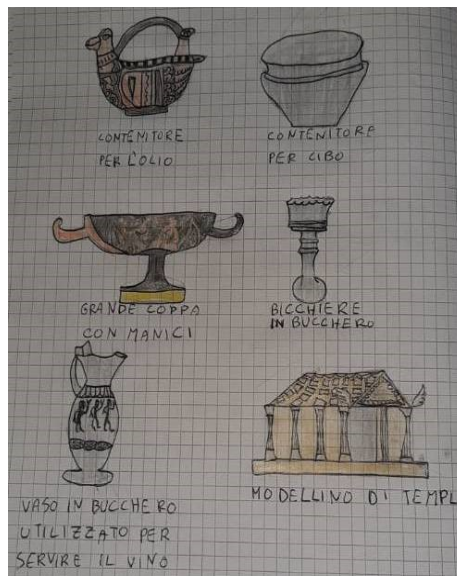 CONTENITORE
PER L'OLIO
CONTENITORE
PER CIBO
GRANDE COPPA
CON MANICI
BICCHIERE
IN BUCCHERO
VASO IN BUCCHERO
UTILIZZATO PER
SERVIRE IL VINO
MODELLINO DI TEMPL